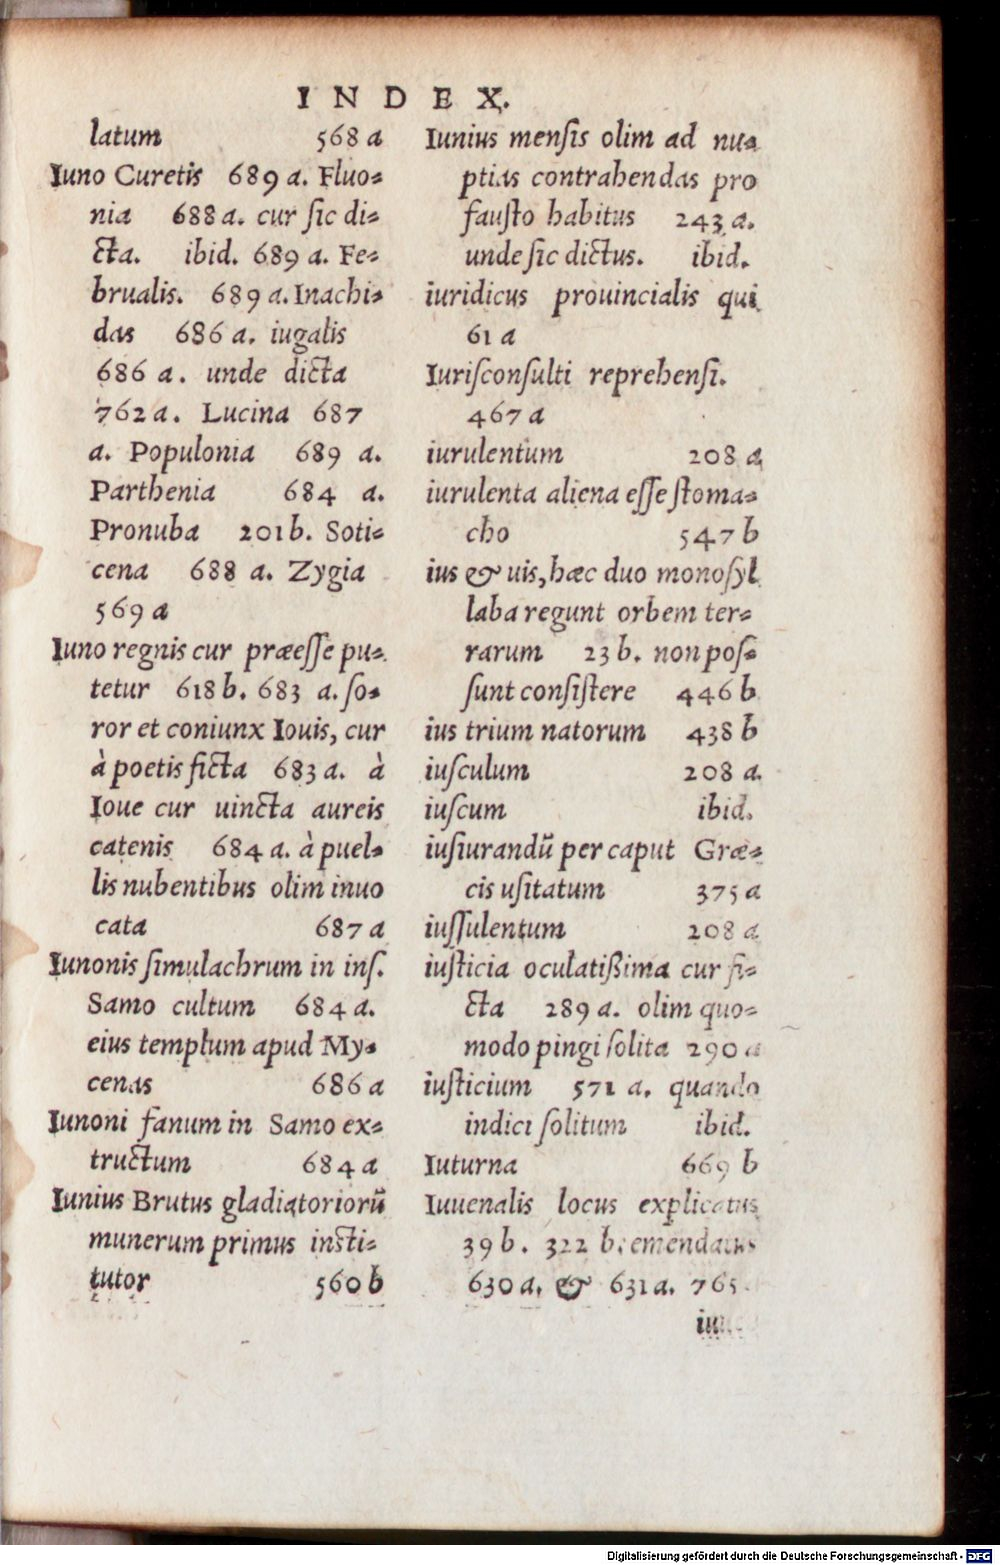 INDEX.
latum 568 a
Iuno Curetis 689 a. Fluo=
nia 688 a. cur ſic di=
cta. ibid. 689 a. Fe=
brualis. 689 a. Inachi=
das 686 a. iugalis
686 a. unde dicta
762 a. Lucina 687
a. Populonia 689 a.
Parthenia 684 a.
Pronuba 201 b. Soti=
cena 688 a. Zygia
569 a
Iuno regnis cur præeſſe pu=
tetur 618 b. 683 a. ſo=
ror et coniunx Iouis, cur
à poetis ficta 683 a. à
Ioue cur uincta aureis
catenis 684 a. à puel=
lis nubentibus olim inuo
cata 687 a
Iunonis ſimulachrum in inſ.
Samo cultum 684 a.
eius templum apud My=
cenas 686 a
Iunoni fanum in Samo ex=
tructum 684 a
Iunius Brutus gladiatoriorū
munerum primus inſti=
tutor 560 b
Iunius menſis olim ad nu=
ptias contrahendas pro
fauſto habitus 243 a.
unde ſic dictus. ibid.
iuridicus prouincialis qui
61 a
Iuriſconſulti reprehenſi.
467 a
iurulentum 208 a
iurulenta aliena eſſe ſtoma=
cho 547 b
ius & uis, hæc duo monoſyl
laba regunt orbem ter=
rarum 23 b. non poſ=
ſunt conſiſtere 446 b
ius trium natorum 438 b
iuſculum 208 a.
iuſcum ibid.
iuſiurandū per caput Græ=
cis uſitatum 375 a
iuſſulentum 208 a
iuſticia oculatißima cur fi=
cta 289 a. olim quo=
modo pingi ſolita 290 a
iuſticium 571 a. quando
indici ſolitum ibid.
Iuturna 669 b
Iuuenalis locus explicatus
39 b. 322 b. emendatus
630 a. & 631 a. 765
Digitalisierung gefördert durch die Deutsche Forschungsgemeinschaft - DFG